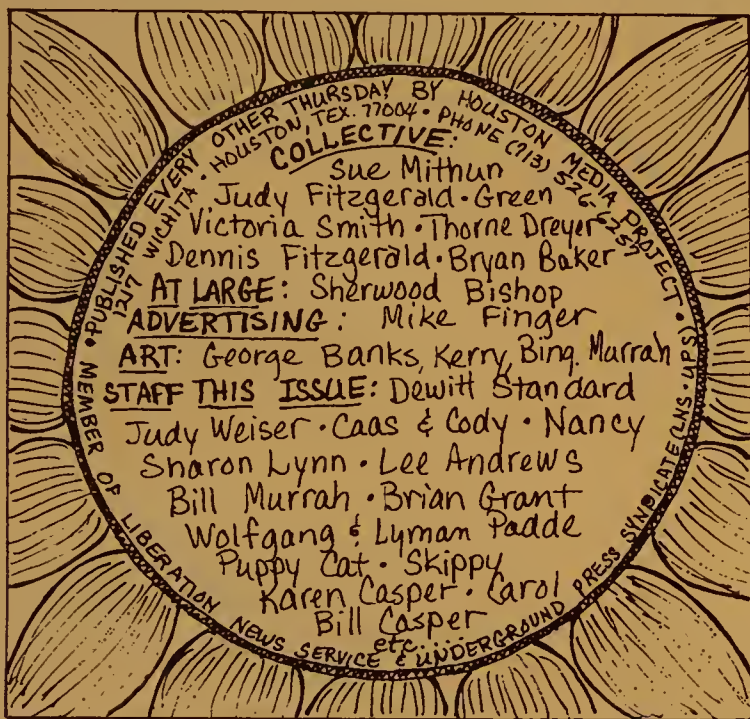 • PUBLISHED EVERY OTHER THURSDAY BY HOUSTON MEDIA PROJECT •
1217 WICHITA • HOUSTON, TEX. 77004 • PHONE (713) 526-6257
MEMBER OF LIBERATION NEWS SERVICE & UNDERGROUND PRESS SYNDICATE (LNS • UPS)
COLLECTIVE:
Sue Mithun
Judy Fitzgerald • Green
Victoria Smith • Thorne Dreyer
Dennis Fitzgerald • Bryan Baker
AT LARGE: Sherwood Bishop
ADVERTISING: Mike Finger
ART: George Banks, Kerry, Bing. Murrah
STAFF THIS ISSUE: Dewitt Standard
Judy Weiser • Caas & Cody • Nancy
Sharon Lynn • Lee Andrews
Bill Murrah • Brian Grant
Wolfgang & Lyman Padde
Puppy Cat • Skippy
Karen Casper • Carol
Bill Casper
etc....